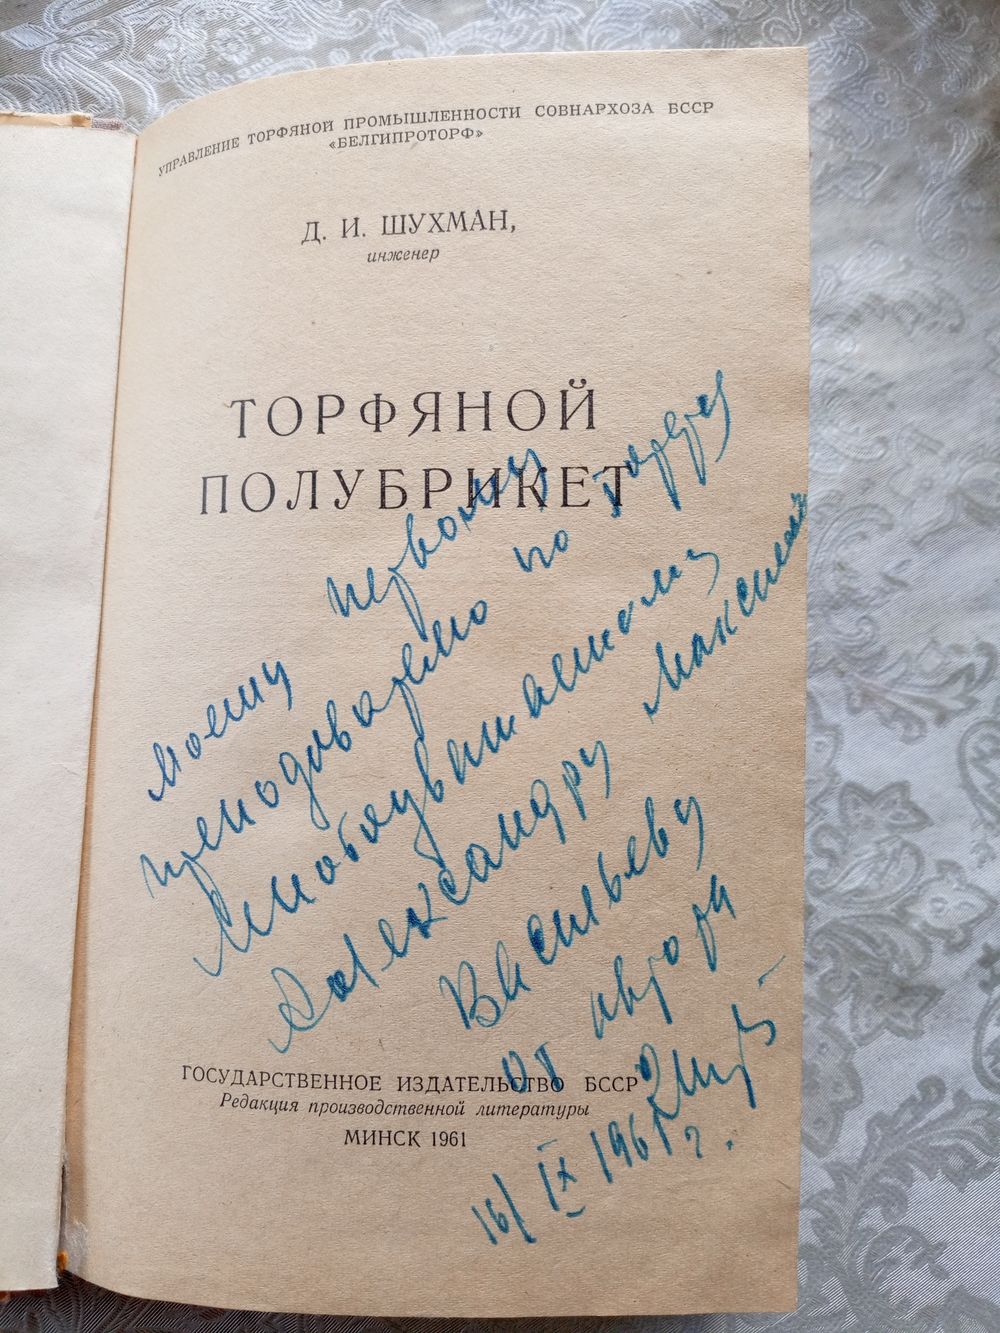 УПРАВЛЕНИЕ ТОРФЯНОЙ ПРОМЫШЛЕННОСТИ СОВНАРХОЗА БССР
«БЕЛГИПРОТОРФ»
Д. И. ШУХМАН,
инженер
ТОРФЯНОЙ
ПОЛУБРИКЕТ
Моему первому
преподавателю по торфу
Многоуважаемому
Александру Максимов
Васильеву
от автора
16/IX 1961 г.
ГОСУДАРСТВЕННОЕ ИЗДАТЕЛЬСТВО БССР
Редакция производственной литературы
МИНСК 1961